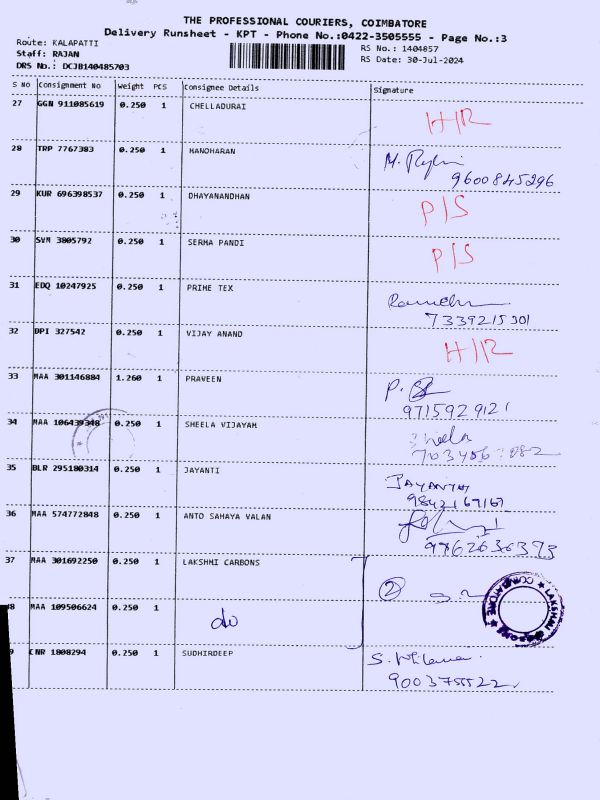 THE PROFESSIONAL COURIERS, COIMBATORE
Delivery Runsheet - KPT - Phone No.:0422-3505555 - Page No.:3
Route: KALAPATTI
RS No.: 1404857
Staff: RAJAN
RS Date: 30-Jul-2024
DRS No.: DCJB140485703
S No Consignment No Weight PCS Consignee Details Signature
27 GGN 911085619 0.250 1 CHELLADURAI H/R
28 TRP 7767383 0.250 1 MANOHARAN M.
9600845296
29 KUR 696398537 0.250 1 DHAYANANDHAN P/S
30 SVM 3805792 0.250 1 SERMA PANDI P/S
31 EDQ 10247925 0.250 1 PRIME TEX
7339215301
32 DPI 327542 0.250 1 VIJAY ANAND H/R
33 MAA 301146884 1.260 1 PRAVEEN P.
9715929121
34 MAA 106439348 0.250 1 SHEELA VIJAYAM
35 BLR 295180314 0.250 1 JAYANTI JAYANTHI
9842167167
36 MAA 574772848 0.250 1 ANTO SAHAYA VALAN
9762636393
37 MAA 301692250 0.250 1 LAKSHMI CARBONS
2
LAKSHMI CARBONS COIMBATORE
8 MAA 109506624 0.250 1 do
9 CNR 1808294 0.250 1 SUDHIRDEEP S.
9003755522